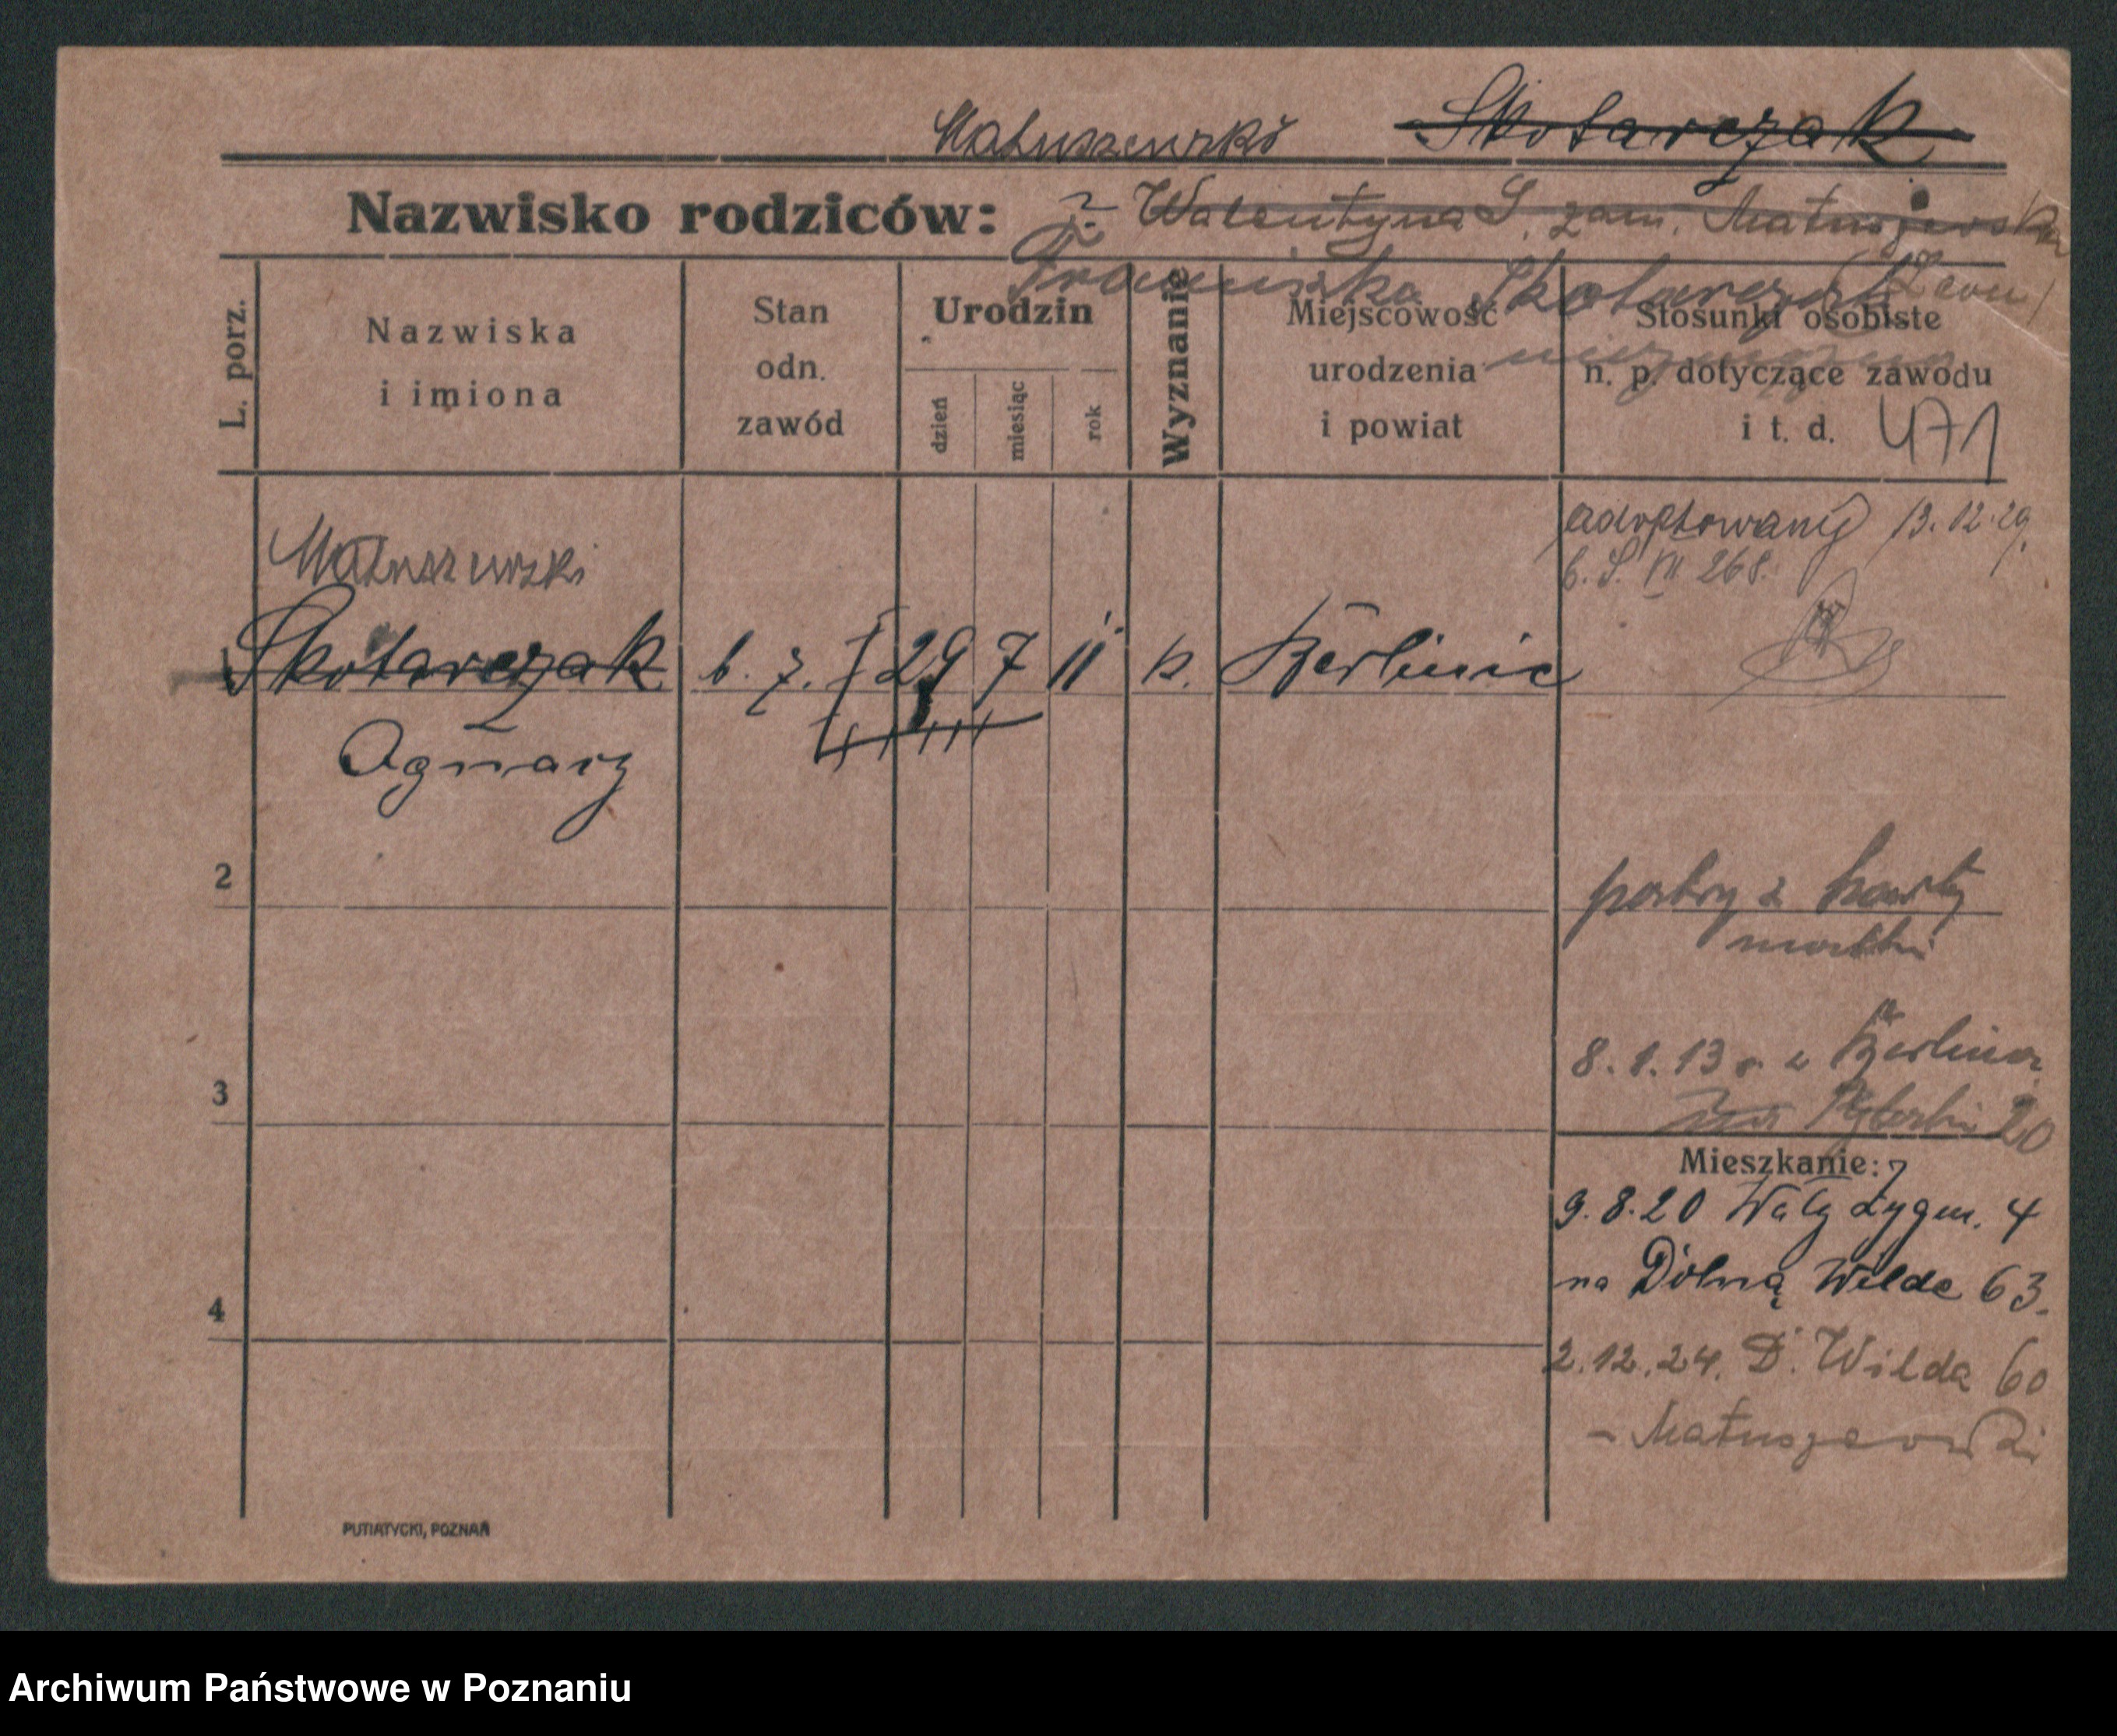 Matuszewski Skotarczak
Nazwisko rodziców: ? Walentyna S. zam. Matuszewska
Franciszka Skotarczak
L. porz.
Nazwiska
i imiona
Stan
odn.
zawód
Urodzin
dzień
miesiąc
rok
Wyznanie
Miejscowość
urodzenia
i powiat
Stosunki osobiste
n. p. dotyczące zawodu
i t. d. 471
adoptowany 13.12.29.
268.
Matuszewski
Skotarczak b. z. 29 7 11 k. Berlinie
2
karty
matki
8.1.13 r. z Berlina
20
3
Mieszkanie:
9.8.20 Wały Zygm. 4
na Dolną Wildę 63.
4
2.12.24. D. Wilda 60
- Matuszewski
PUTIATYCKI, POZNAŃ
Archiwum Państwowe w Poznaniu